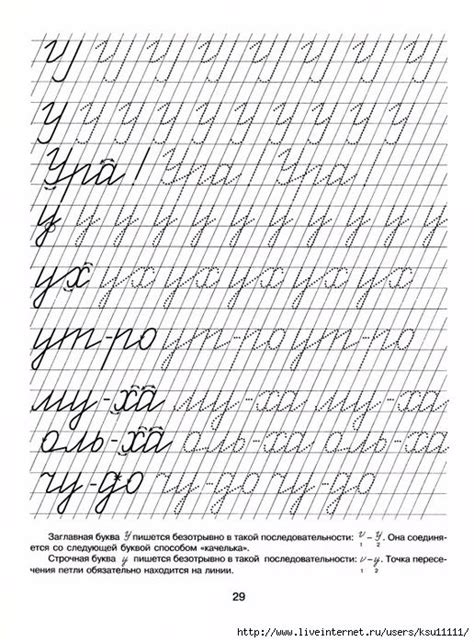 У У У У У У У У
У У У У У У У У У
Ура! Ура! Ура!
у у у у у у у у у у
ух ух ух ух ух ух
ут-ро ут-ро ут-ро
му-ха му-ха му-ха
оль-ха оль-ха оль-ха
чу-до чу-до чу-до
Заглавная буква У пишется безотрывно в такой последовательности: – У. Она соединя-
1 2
ется со следующей буквой способом «качелька».
Строчная буква у пишется безотрывно в такой последовательности: – у. Точка пересе-
1 2
чения петли обязательно находится на линии.
29
http://www.liveinternet.ru/users/ksu11111/